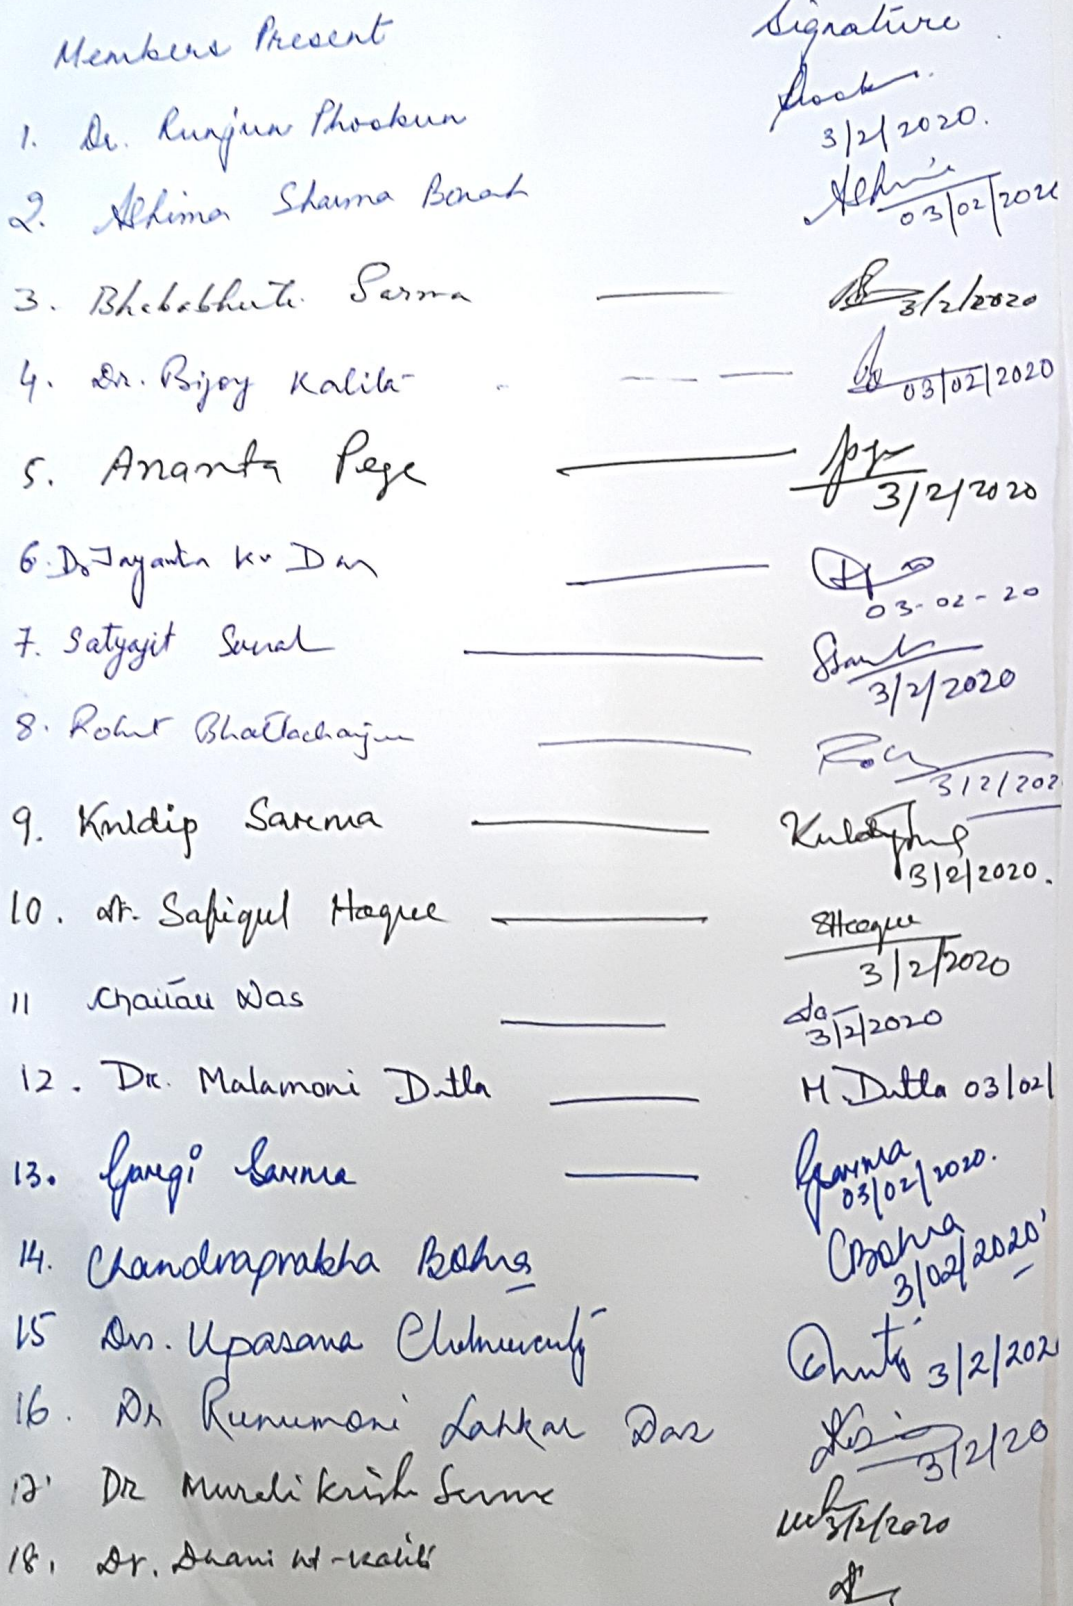 Members Present Signature
1. Dr. Runjun Phookun
3/2/2020.
2. Ashima Sharma Borah
03/02/202
3. Bhababhuti Sarma 3/2/2020
4. Dr. Bijoy Kalita 03/02/2020
5. Ananta Pegu
3/2/2020
6. Dr Jayanta Kr Das
03-02-20
7. Satyajit Sarmah
3/2/2020
8. Rohit Bhattacharjee
3/2/202
9. Kuldip Sarma
3/2/2020.
10. Dr. Safiqul Haque SHaque
3/2/2020
11 Das
3/2/2020
12. Dr. Malamoni Dutta M. Dutta 03/02/
13. Gargi Sarma GSarma
03/02/2020.
14. Chandraprabha Bohra CBohra
3/02/2020
15 Dr. Upasana 3/2/202
16. Dr Runumoni Lahkar Das
3/2/20
17. Dr Murali Krishna Sarma
3/2/2020
18. Dr. Kalita